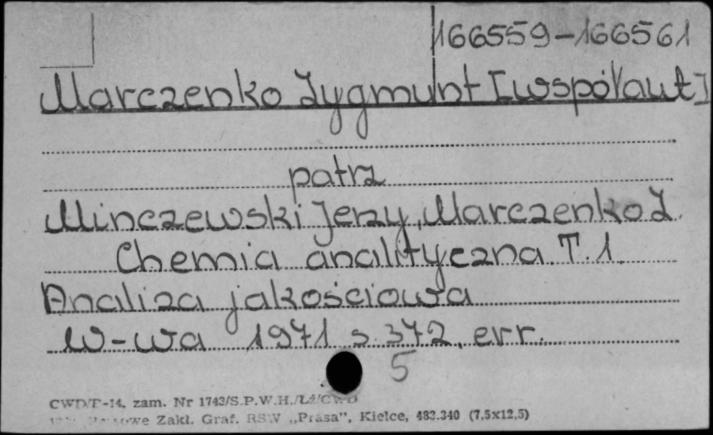 166559-166561
Marczenko Zygmunt [współaut]
patrz
Minczewski Jerzy, Marczenko Z.
Chemia analityczna T. 1.
Analiza jakościowa
W-wa 1971 s. 372, err.
5
CWD/T-14, zam. Nr 1743/S.P.W.H.
Zakł. Graf. RSW „Prasa”, Kielce, 483.340 (7,5x12,5)